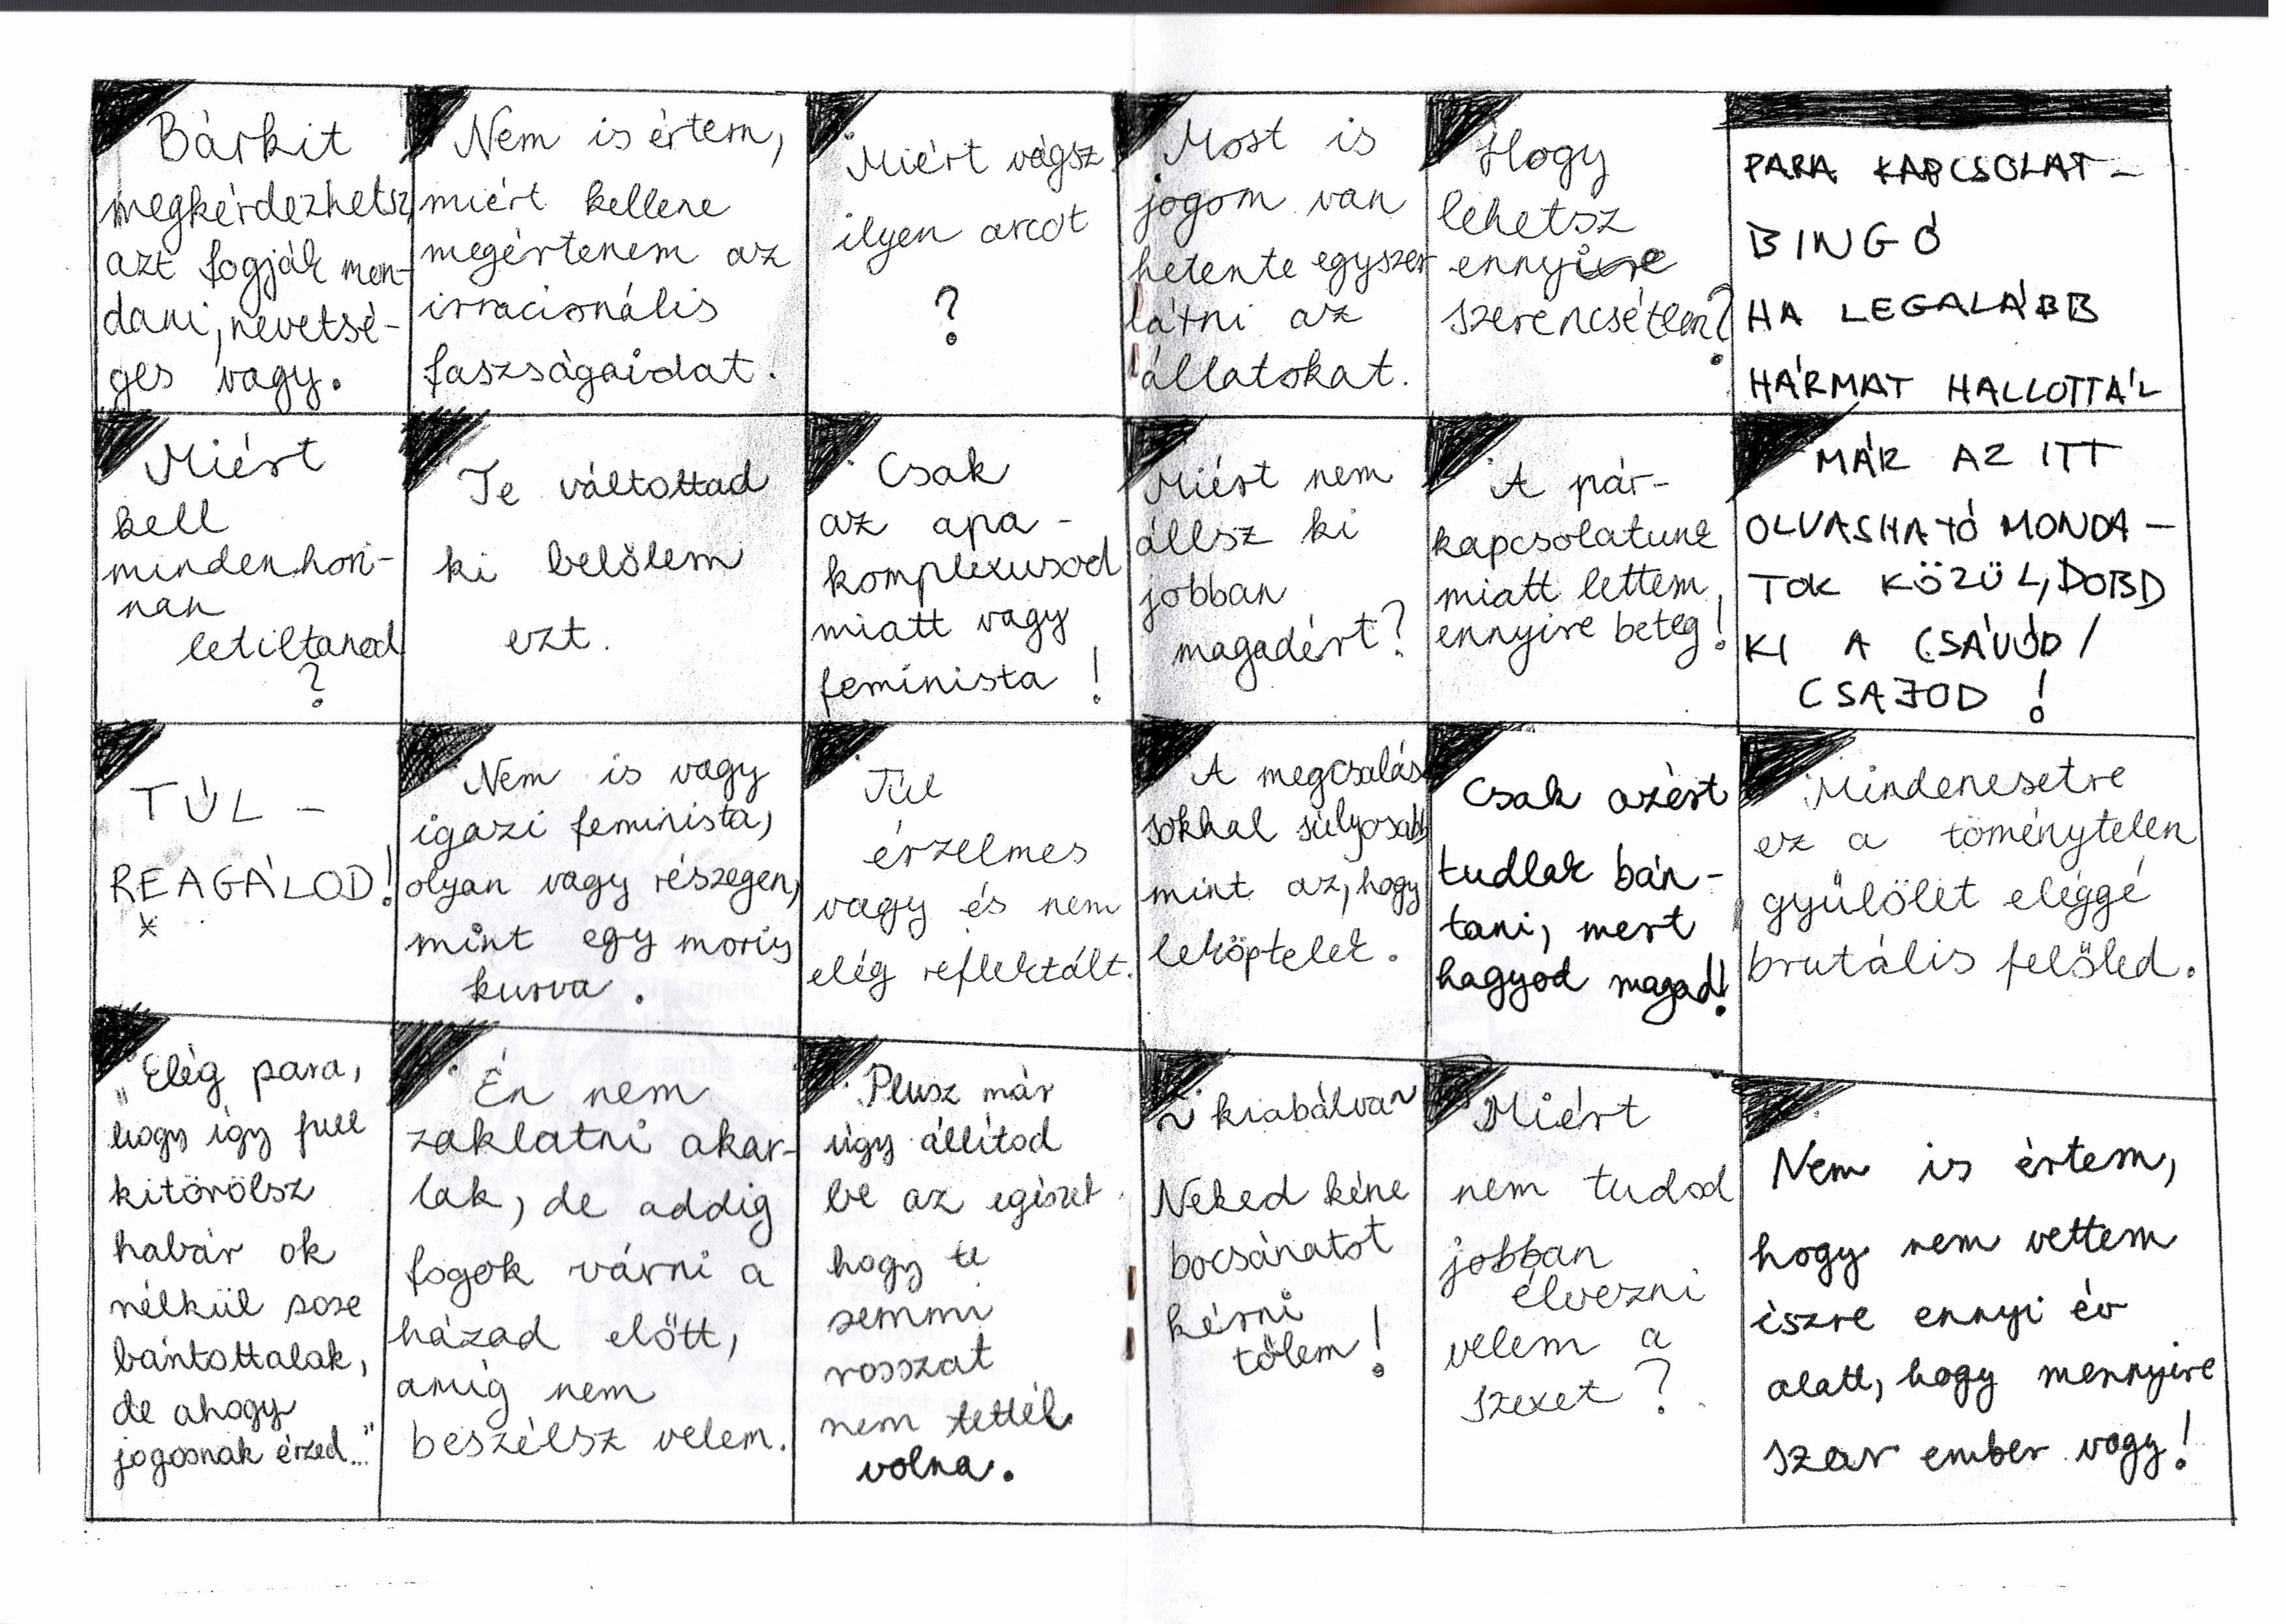 Bárkit
megkérdezhetsz,
azt fogják mon-
dani, nevetsé-
ges vagy.
Nem is értem,
miért kellene
megértenem az
irracionális
faszságaidat.
Miért vágsz
ilyen arcot
?
Most is
jogom van
hetente egyszer
látni az
állatokat.
Hogy
lehetsz
ennyire
szerencsétlen?
PARA KAPCSOLAT-
BINGÓ
HA LEGALÁBB
HÁRMAT HALLOTTÁL
Miért
kell
mindenhon-
nan
letiltanod
?
Te váltottad
ki belőlem
ezt.
Csak
az apa-
komplexusod
miatt vagy
feminista !
Miért nem
állsz ki
jobban
magadért?
A pár-
kapcsolatunk
miatt lettem
ennyire beteg!
MÁR AZ ITT
OLVASHATÓ MONDA-
TOK KÖZÜL, DOBD
KI A CSÁVÓD/
CSAJOD !
TÚL-
REAGÁLOD!
*
Nem is vagy
igazi feminista,
olyan vagy részegen,
mint egy moris
kurva.
Túl
érzelmes
vagy és nem
elég reflektált.
A megcsalás
sokkal súlyosabb
mint az, hogy
leköptelek.
Csak azért
tudlak bán-
tani, mert
hagyod magad!
Mindenesetre
ez a töménytelen
gyűlölet eléggé
brutális felőled.
"Elég para,
hogy így full
kitörölsz
habár ok
nélkül sose
bántottalak,
de ahogy
jogosnak érzed..."
Én nem
zaklatni akar-
lak, de addig
fogok várni a
házad előtt,
amíg nem
beszélsz velem.
Plusz már
úgy állítod
be az egészet
hogy te
semmi
rosszat
nem tettél
volna.
~ kiabálva ~
Neked kéne
bocsánatot
kérni
tőlem!
Miért
nem tudod
jobban
élvezni
velem a
szexet ?
Nem is értem,
hogy nem vettem
észre ennyi év
alatt, hogy mennyire
szar ember vagy!